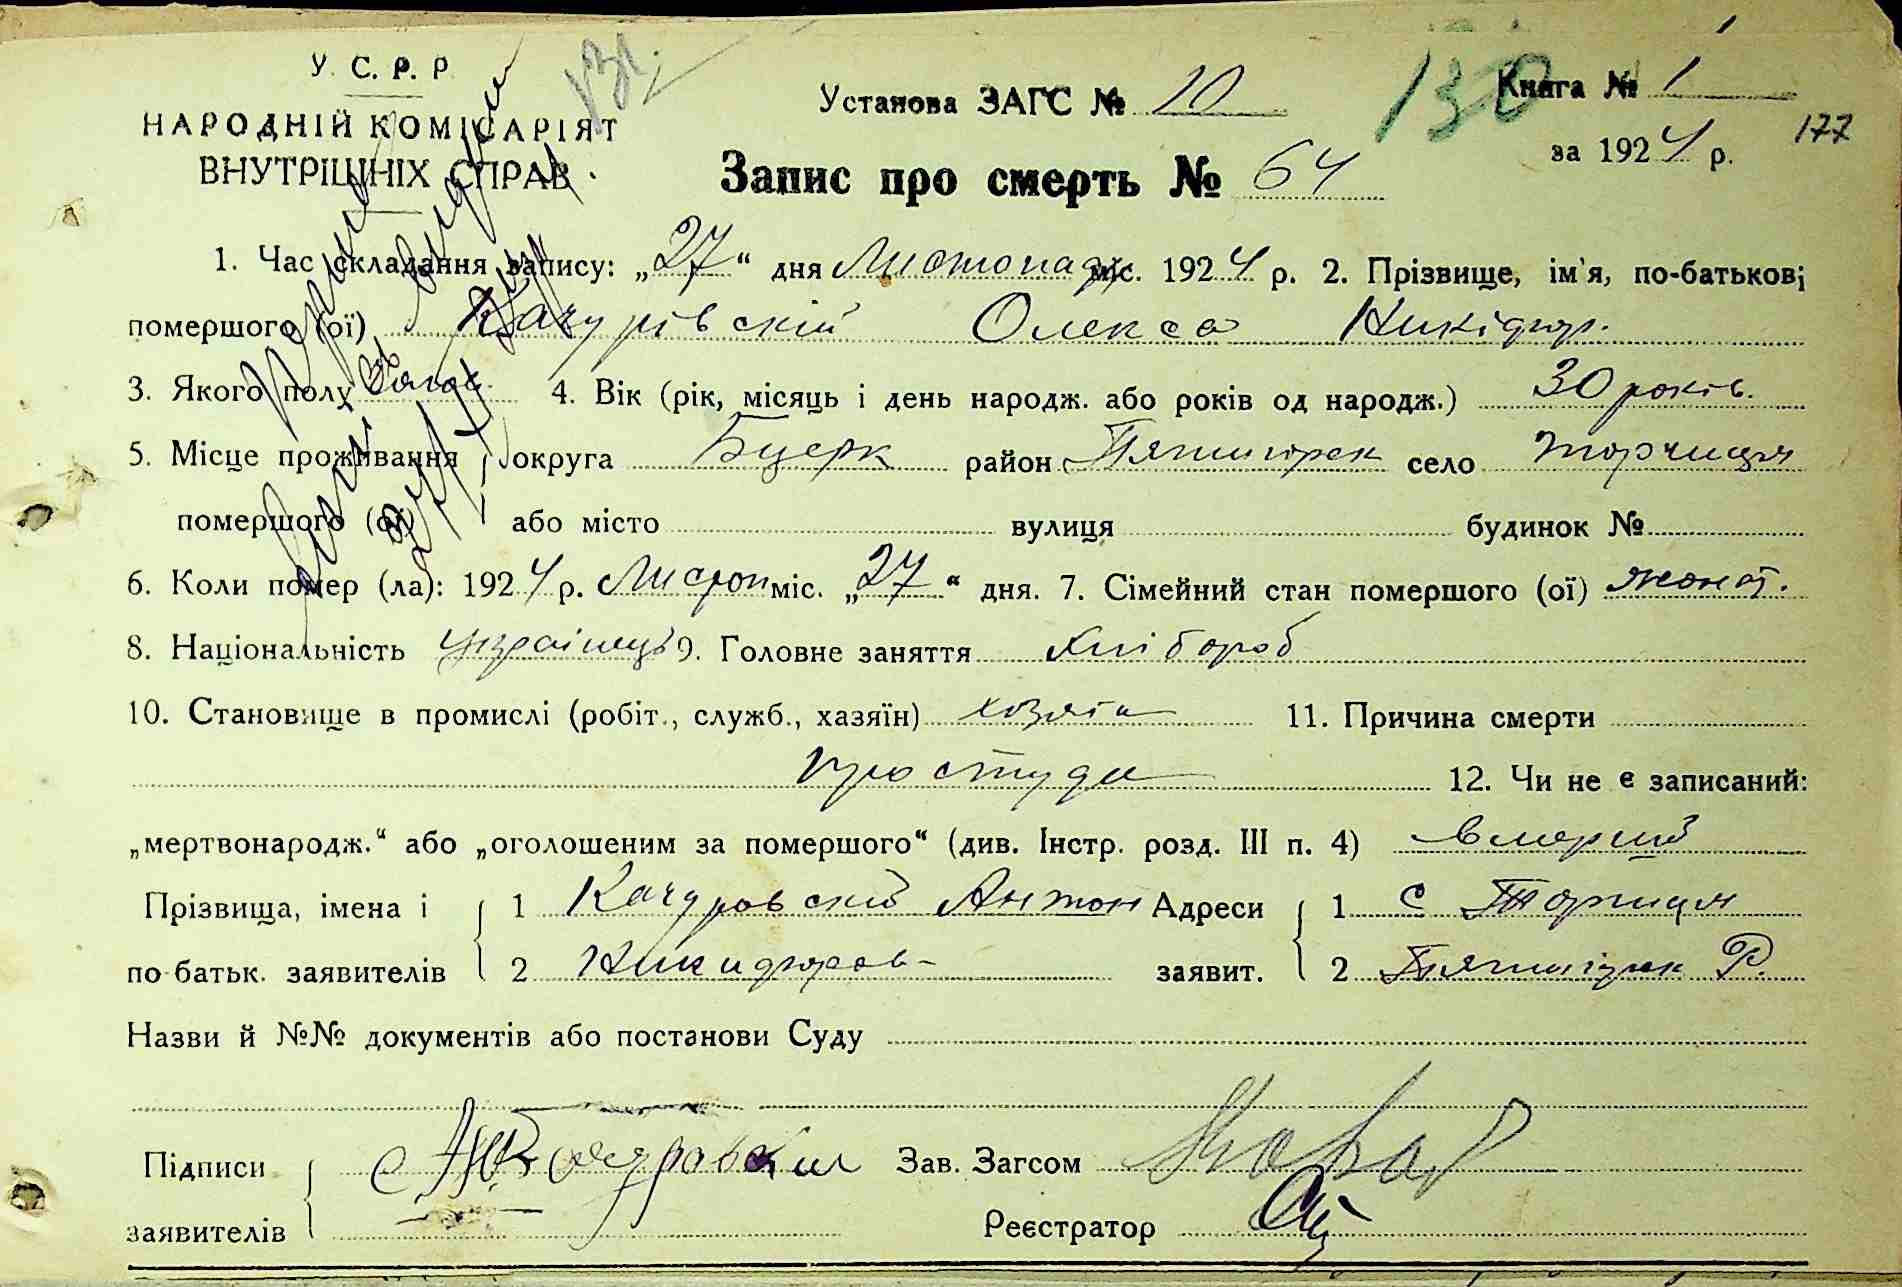 У. С. Р. Р.
НАРОДНІЙ КОМІСАРІЯТ
ВНУТРІШНІХ СПРАВ
131
Установа ЗАГС № 10
130
Книга № 1
за 1924 р.
177
Запис про смерть № 64
1. Час складання запису: „27“ дня Листопад міс. 1924 р. 2. Прізвище, ім'я, по-батькові
помершого (ої) Качурівскій Олекса Никіфор.
3. Якого полу 4. Вік (рік, місяць і день народж. або років од народж.) 30 років.
5. Місце проживання округа Бцерк район Пятигорск село Торчиця
помершого (ої) або місто вулиця будинок №
6. Коли помер (ла): 1924 р. Листоп міс. „27“ дня. 7. Сімейний стан помершого (ої) жонат.
8. Національність українець 9. Головне заняття хлібороб
10. Становище в промислі (робіт., служб., хазяїн) хозяїн 11. Причина смерти
простуда 12. Чи не є записаний:
„мертвонародж.“ або „оголошеним за помершого“ (див. Інстр. розд. III п. 4) вмерший
Прізвища, імена і 1 Качуровскій Антон Адреси 1 с Торчиця
по-батьк. заявителів 2 Никифоров- заявит. 2 Пятигірск Р.
Назви й №№ документів або постанови Суду
Підписи Зав. Загсом
заявителів Реєстратор